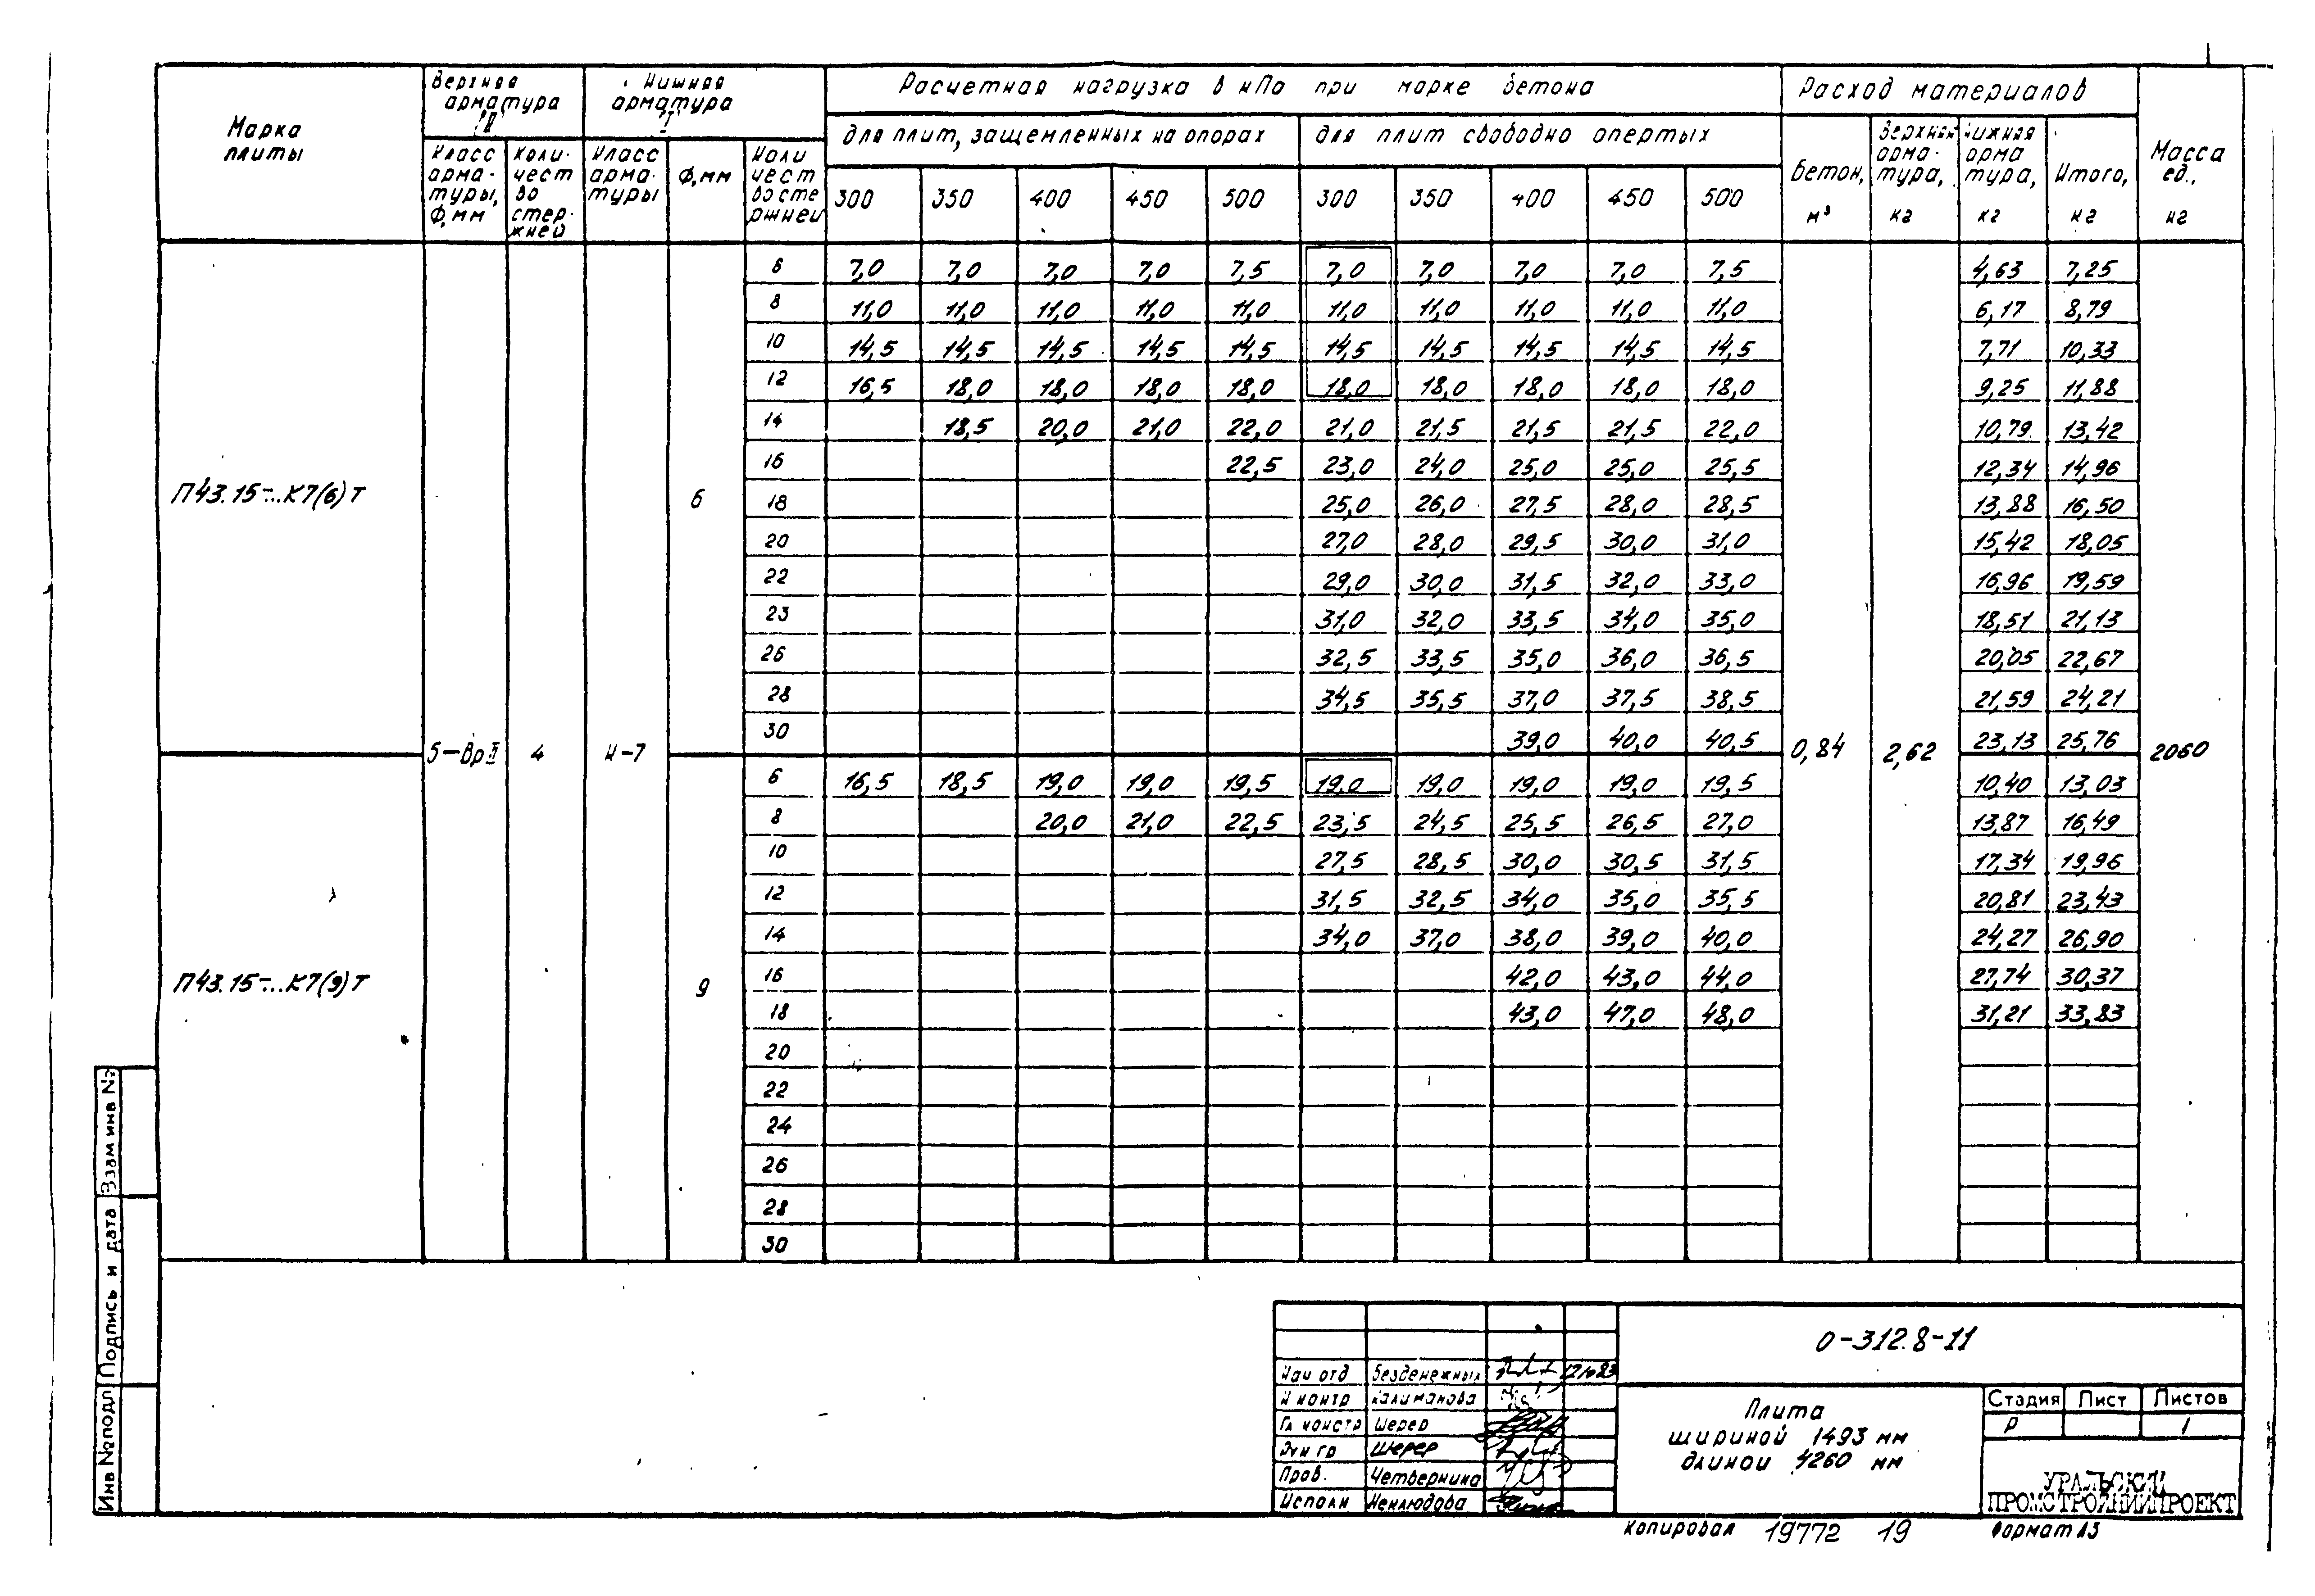 Марка плиты
Верхняя арматура "II"
Нижняя арматура "I"
Расчетная нагрузка в кПа при марке бетона
Расход материалов
Масса ед., кг
для плит, защемленных на опорах
для плит свободно опертых
Класс арма-туры, Ф,мм
Коли-чест во стер-жней
Класс арма-туры
Ф,мм
Коли чест во сте ржней
300 350 400 450 500 300 350 400 450 500
Бетон, м³
Верхняя арма-тура, кг
нижняя арма тура, кг
Итого, кг
П43.15-...К7(6)Т
5-ВрII 4 К-7 6
0,84 2,62 2060
6 7,0 7,0 7,0 7,0 7,5 7,0 7,0 7,0 7,0 7,5 4,63 7,25
8 11,0 11,0 11,0 11,0 11,0 11,0 11,0 11,0 11,0 11,0 6,17 8,79
10 14,5 14,5 14,5 14,5 14,5 14,5 14,5 14,5 14,5 14,5 7,71 10,33
12 16,5 18,0 18,0 18,0 18,0 18,0 18,0 18,0 18,0 18,0 9,25 11,88
14 18,5 20,0 21,0 22,0 21,0 21,5 21,5 21,5 22,0 10,79 13,42
16 22,5 23,0 24,0 25,0 25,0 25,5 12,34 14,96
18 25,0 26,0 27,5 28,0 28,5 13,88 16,50
20 27,0 28,0 29,5 30,0 31,0 15,42 18,05
22 29,0 30,0 31,5 32,0 33,0 16,96 19,59
23 31,0 32,0 33,5 34,0 35,0 18,51 21,13
26 32,5 33,5 35,0 36,0 36,5 20,05 22,67
28 34,5 35,5 37,0 37,5 38,5 21,59 24,21
30 39,0 40,0 40,5 23,13 25,76
П43.15-...К7(9)Т
9
6 16,5 18,5 19,0 19,0 19,5 19,0 19,0 19,0 19,0 19,5 10,40 13,03
8 20,0 21,0 22,5 23,5 24,5 25,5 26,5 27,0 13,87 16,49
10 27,5 28,5 30,0 30,5 31,5 17,34 19,96
12 31,5 32,5 34,0 35,0 35,5 20,81 23,43
14 34,0 37,0 38,0 39,0 40,0 24,27 26,90
16 42,0 43,0 44,0 27,74 30,37
18 43,0 47,0 48,0 31,21 33,83
20
22
24
26
28
30
Инв № подл Подпись и дата Взам инв №
0-312.8-11
Нач отд Безденежных
Н контр Калиманова
Гл констр Шерер
Рук гр Шерер
Пров. Четверкина
Исполн Неклюдова
Плита
шириной 1493 мм
длиной 4260 мм
Стадия Лист Листов
Р 1
УРАЛЬСКИЙ
ПРОМСТРОЙНИИПРОЕКТ
Копировал 19772 19 Формат А3